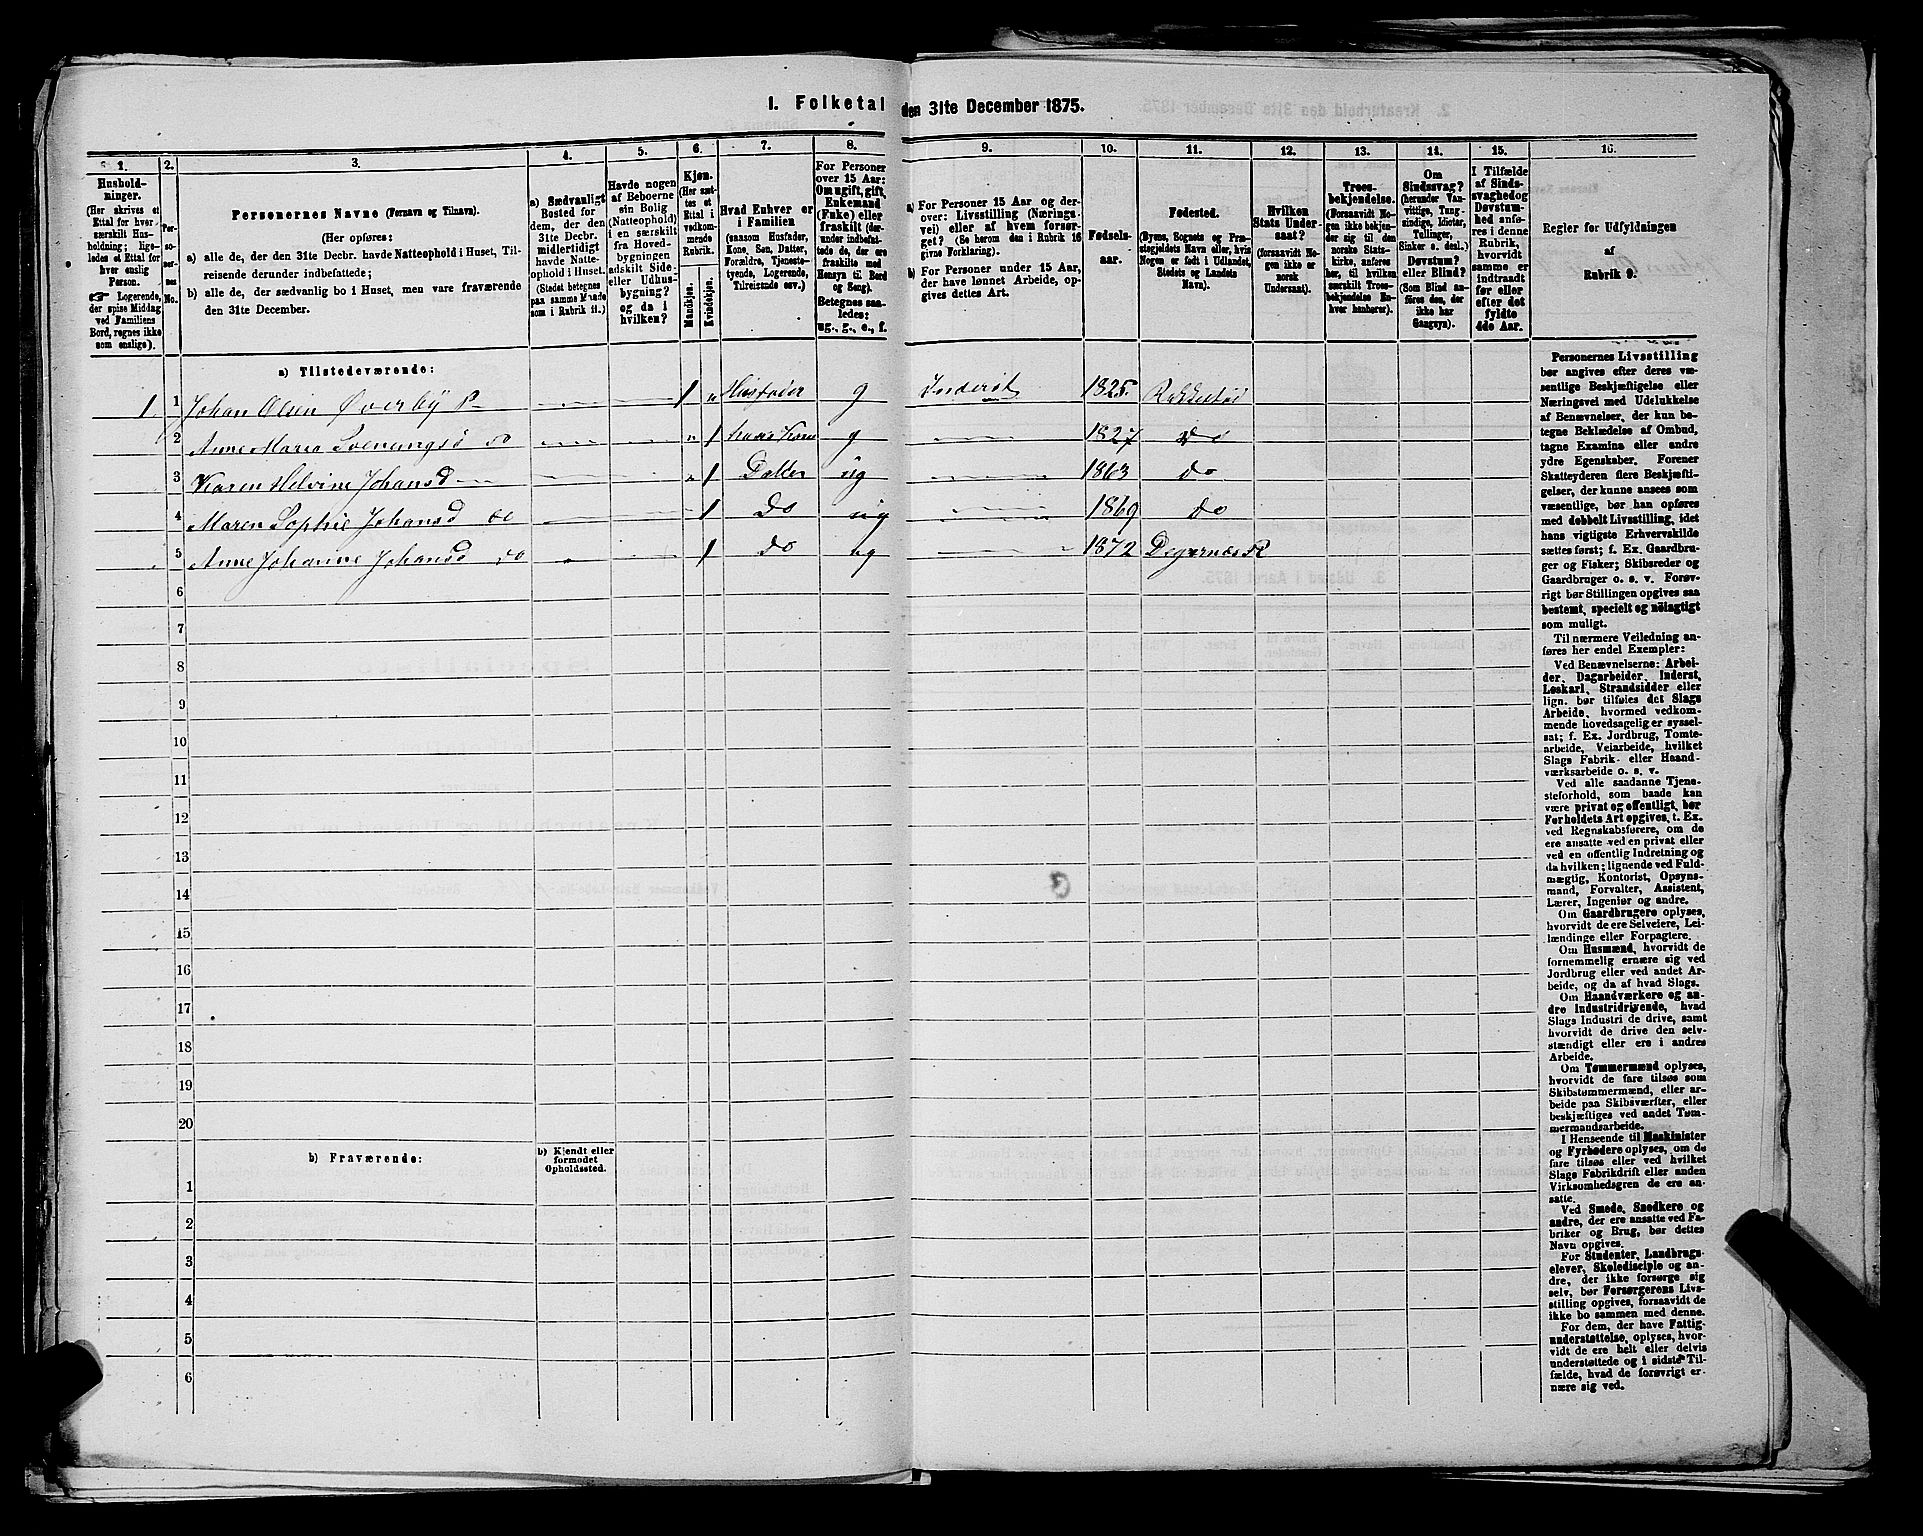 I. Folketal den 31te December 1875.
1. 2. 3. 4. 5. 6. 7. 8. 9. 10. 11. 12. 13. 14. 15. 16.
Hushold-
ninger.
(Her skrives et
Ettal for hver
særskilt Hus-
holdning; lige-
ledes et Ettal for
hver enslig
Person.
☞ Logerende,
der spise Middag
ved Familiens
Bord, regnes ikke
som enslige).
Per-
so-
ner-
nes
No.
Personernes Navne (Fornavn og Tilnavn).
(Her opføres:
a) alle de, der den 31te Decbr. havde Natteophold i Huset, Til-
reisende derunder indbefattede;
b) alle de, der sædvanlig bo i Huset, men vare fraværende
den 31te December.
a) Sædvanligt
Bosted for
dem, der den
31te Decbr.
midlertidigt
havde Natte-
ophold i Huset.
(Stedet betegnes
paa samme Maade
som i Rubrik 11.)
Havde nogen
af Beboerne
sin Bolig
(Natteophold)
i en særskilt
fra Hoved-
bygningen
adskilt Side-
eller Udhus-
bygning?
og da i
hvilken?
Kjøn.
(Her sæt-
tes et
Ettal i
vedkom-
mende
Rubrik.
Mandkjøn.
Kvindekjøn.
Hvad Enhver er
i Familien
(saasom Husfader,
Kone, Søn, Datter,
Forældre, Tjeneste-
tyende, Logerende,
Tilreisende osv.)
For Personer
over 15 Aar:
Om ugift, gift,
Enkemand
(Enke) eller
fraskilt (der-
under indbefat-
tede de, der ere
fraskilte med
Hensyn til Bord
og Seng).
Betegnes saa-
ledes:
ug., g., e., f.
a) For Personer 15 Aar og der-
over: Livsstilling (Nærings-
vei) eller af hvem forsør-
get? (Se herom den i Rubrik 16
givne Forklaring).
b) For Personer under 15 Aar,
der have lønnet Arbeide, op-
gives dettes Art.
Fødsels-
aar.
Fødested.
(Byens, Sognets og Præ-
stegjeldets Navn eller, hvis
Nogen er født i Udlandet,
Stedets og Landets
Navn).
Hvilken
Stats Under-
saat?
(forsaavidt No-
gen ikke er
norsk
Undersaat).
Troes-
bekjendelse.
(Forsaavidt No-
gen ikke bekjen-
der sig til den
norske Stats-
kirke, anføres
her, til hvilken
særskilt Troes-
bekjendelse En-
hver henhører).
Om
Sindssvag?
(herunder Van-
vittige, Tung-
sindige, Idioter,
Tullinger,
Sinker o. desl.)
Døvstum?
eller Blind?
(Som Blind an-
føres den, der
ikke har
Gangsyn).
I Tilfælde
af Sinds-
svaghed og
Døvstum-
hed anfø-
res i denne
Rubrik,
hvorvidt
samme er
indtraadt
før eller
efter det
fyldte
4de Aar.
Regler for Udfyldningen
af
Rubrik 9.
a) Tilstedeværende:
1. 1 Johan Olsen Øverby 1 Husfader g Inderst 1825. Rakkestad
2 Anne Maria do 1 g 1827 do
3 Karen Helvine Johansd 1 Datter ug 1863 do
4 Maren Sophie Johansd do 1 do ug 1869 do
5 Anne Johanne Johansd do 1 do ug 1872 Degernæs R
6
7
8
9
10
11
12
13
14
15
16
17
18
19
20
b) Fraværende:
b) Kjendt eller
formodet
Opholdssted.
1
2
3
4
5
6
Personernes Livsstilling
bør angives efter deres væ-
sentlige Beskjæftigelse eller
Næringsvei med Udelukkelse
af Benævnelser, der kun be-
tegne Beklædelse af Ombud,
tagne Examina eller andre
ydre Egenskaber. Forener
Skatteyderen flere Beskjæfti-
gelser, der kunne ansees som
væsentlige, bør han opføres
med dobbelt Livsstilling, idet
hans vigtigste Erhvervskilde
sættes først; f. Ex. Gaardbru-
ger og Fisker; Skibsreder og
Gaardbruger o. s. v. Forøv-
rigt bør Stillingen opgives saa
bestemt, specielt og nøiagtigt
som muligt.
Til nærmere Veiledning an-
føres her endel Exempler:
Ved Benævnelserne: Arbei-
der, Dagarbeider, Inderst,
Løskarl, Strandsidder eller
lign. bør tilføies det Slags
Arbeide, hvormed vedkom-
mende hovedsagelig er syssel-
sat; f. Ex. Jordbrug, Tomte-
arbeide, Veiarbeide, hvilket
Slags Fabrik- eller Haand-
værksarbeide o. s. v.
Ved alle saadanne Tjene-
steforhold, som baade kan
være privat og offentligt, bør
Forholdets Art opgives, t. Ex.
ved Regnskabsførere, om de
ere ansatte ved en privat eller
ved en offentlig Indretning og
da hvilken; lignende ved Fuld-
mægtig, Kontorist, Opsyns-
mand, Forvalter, Assistent,
Lærer, Ingeniør og andre.
Om Gaardbrugere oplyses,
hvorvidt de ere Selveiere, Lei-
lændinge eller Forpagtere.
Om Husmænd, hvorvidt de
fornemmelig ernære sig ved
Jordbrug eller ved andet Ar-
beide, og da af hvad Slags.
Om Haandværkere og an-
dre Industridrivende, hvad
Slags Industri de drive, samt
hvorvidt de drive den selv-
stændigt eller ere i andres
Arbeide.
Om Tømmermænd oplyses,
hvorvidt de fare tilsøs som
Skibstømmermænd, eller ar-
beide paa Skibsværfter, eller
beskjæftiges ved andet Tøm-
mermandsarbeide.
I Henseende til Maskinister
og Fyrbødere oplyses, om de
fare tilsøs eller ved hvilket
Slags Fabrikdrift eller anden
Virksomhedsgren de ere an-
satte.
Ved Smede, Snedkere og
andre, der ere ansatte ved Fa-
briker og Brug, bør dettes
Navn opgives.
For Studenter, Landbrugs-
elever, Skoledisciple og an-
dre, der ikke forsørge sig
selv, bør Forsørgerens Livs-
stilling opgives, forsaavidt de
ikke bo sammen med denne.
For dem, der have Fattig-
understøttelse, oplyses, hvor-
vidt de ere helt eller delvis
understøttede og i sidste Til-
fælde, hvad de forøvrigt er-
nære sig ved.